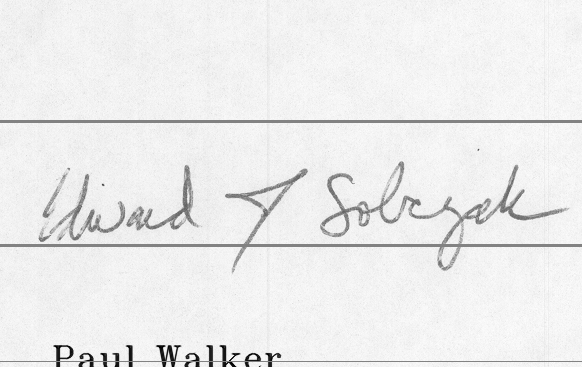 Edward J Sobczak
Paul Walker